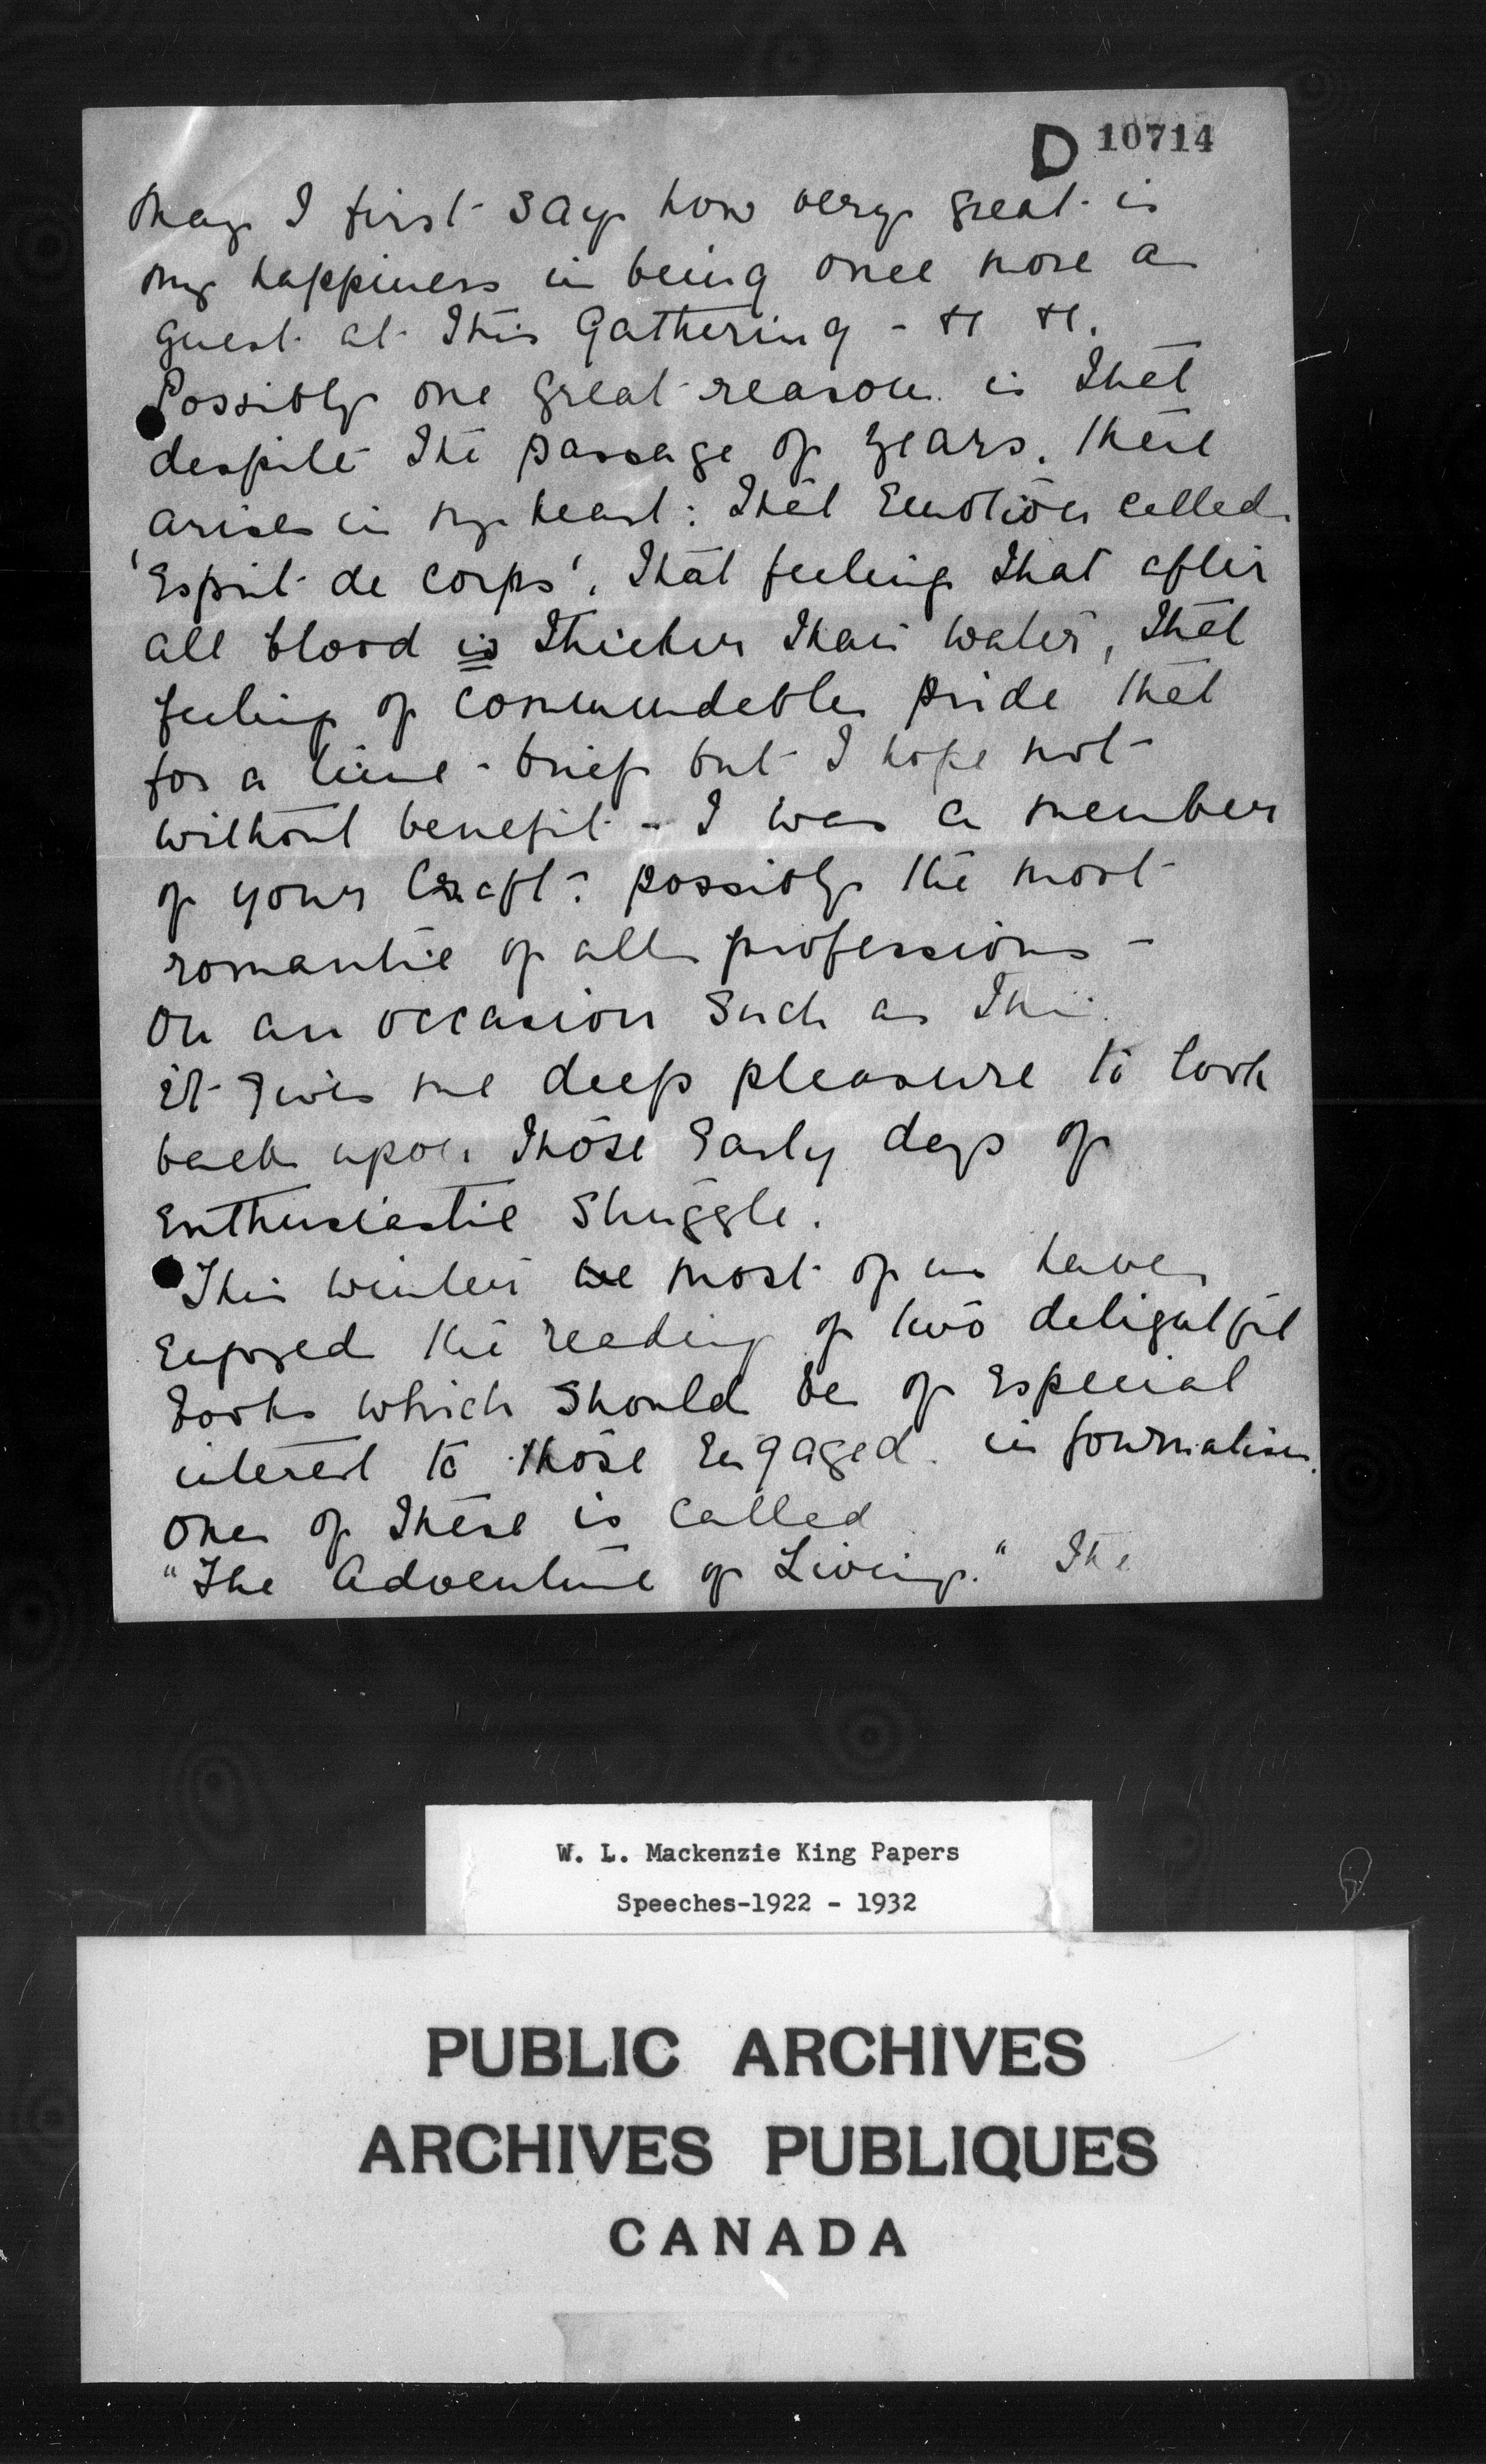 D 10714
May I first say how very great is
my happiness in being once more a
guest at this gathering - &c &c.
Possibly one great reason is that
despite the passage of years, there
arises in my heart: that Emotion called
'Esprit de corps', that feeling that after
all blood is thicker than water, that
feeling of commendable pride that
for a time - brief but I hope not
without benefit - I was a member
of your Craft: possibly the most
romantic of all professions -
On an occasion such as this
it gives me deep pleasure to look
back upon those Early days of
Enthusiastic Struggle.
This winter we most of us have
Enjoyed the reading of two delightful
books which should be of Especial
interest to those Engaged in journalism.
One of these is called
"The Adventure of Living." The
W. L. Mackenzie King Papers
Speeches-1922 - 1932
PUBLIC ARCHIVES
ARCHIVES PUBLIQUES
CANADA